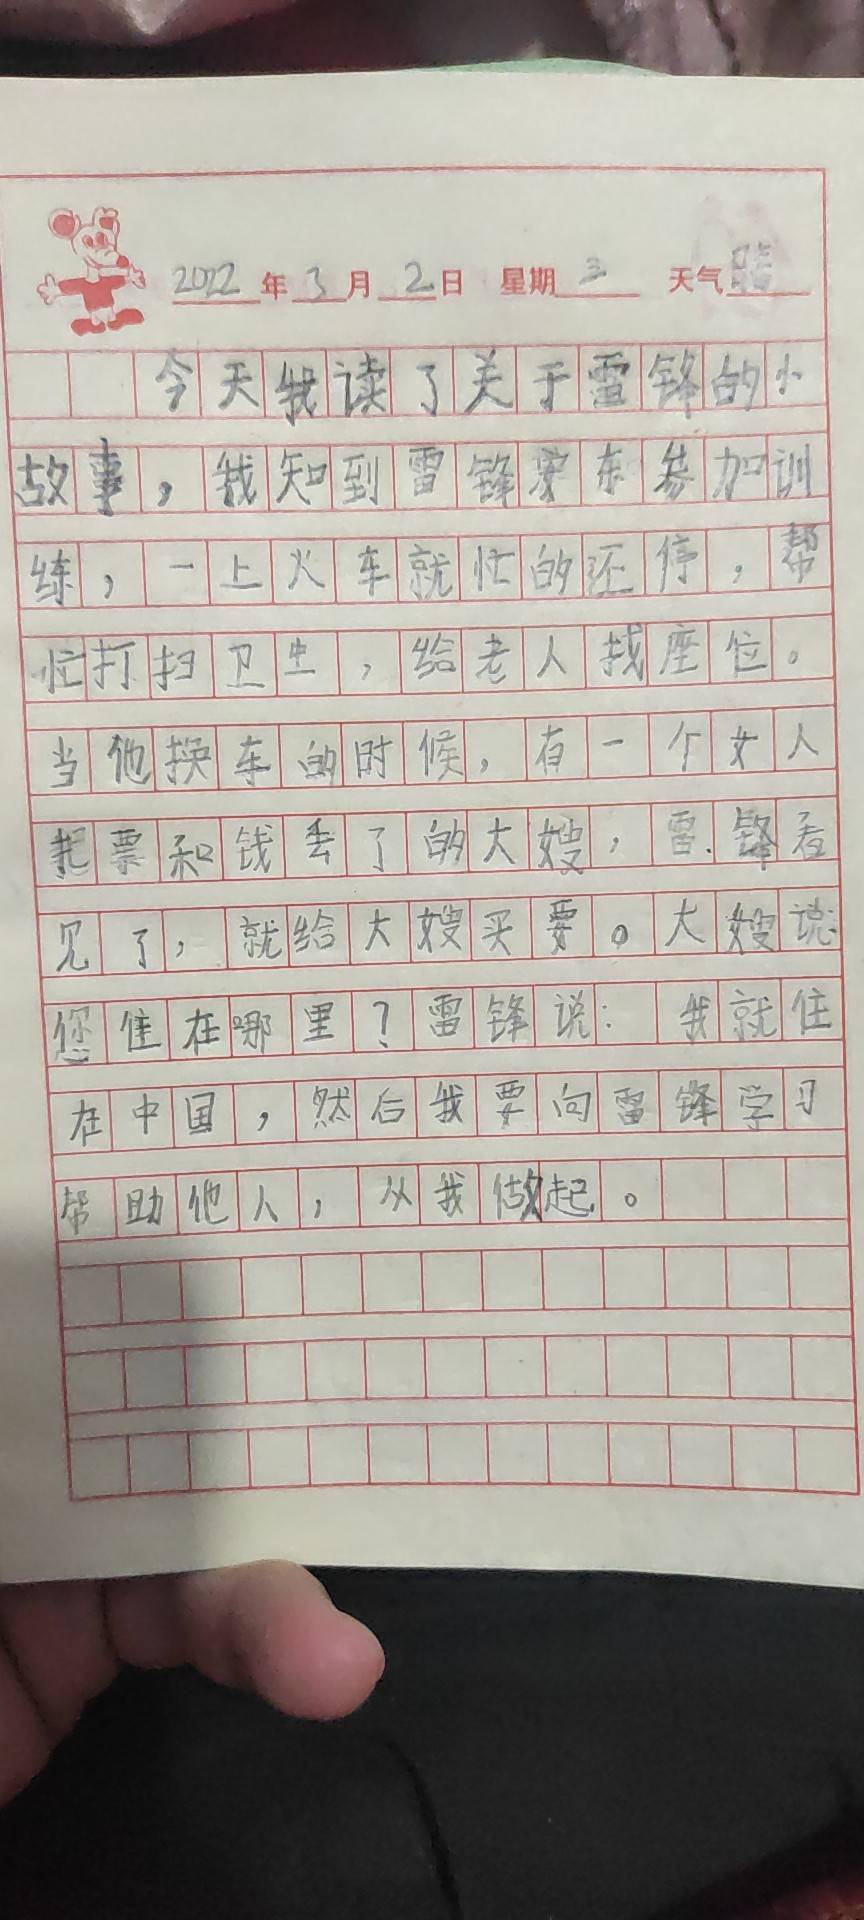 2022年3月2日 星期三 天气晴
今天我读了关于雷锋的小
故事，我知到雷锋穿东参加训
练，一上火车就忙的还停，帮
忙打扫卫生，给老人找座位。
当他换车的时候，有一个女人
把票和钱丢了的大嫂，雷锋看
见了，就给大嫂买要。大嫂说:
您住在哪里？雷锋说：我就住
在中国，然后我要向雷锋学习
帮助他人，从我做起。